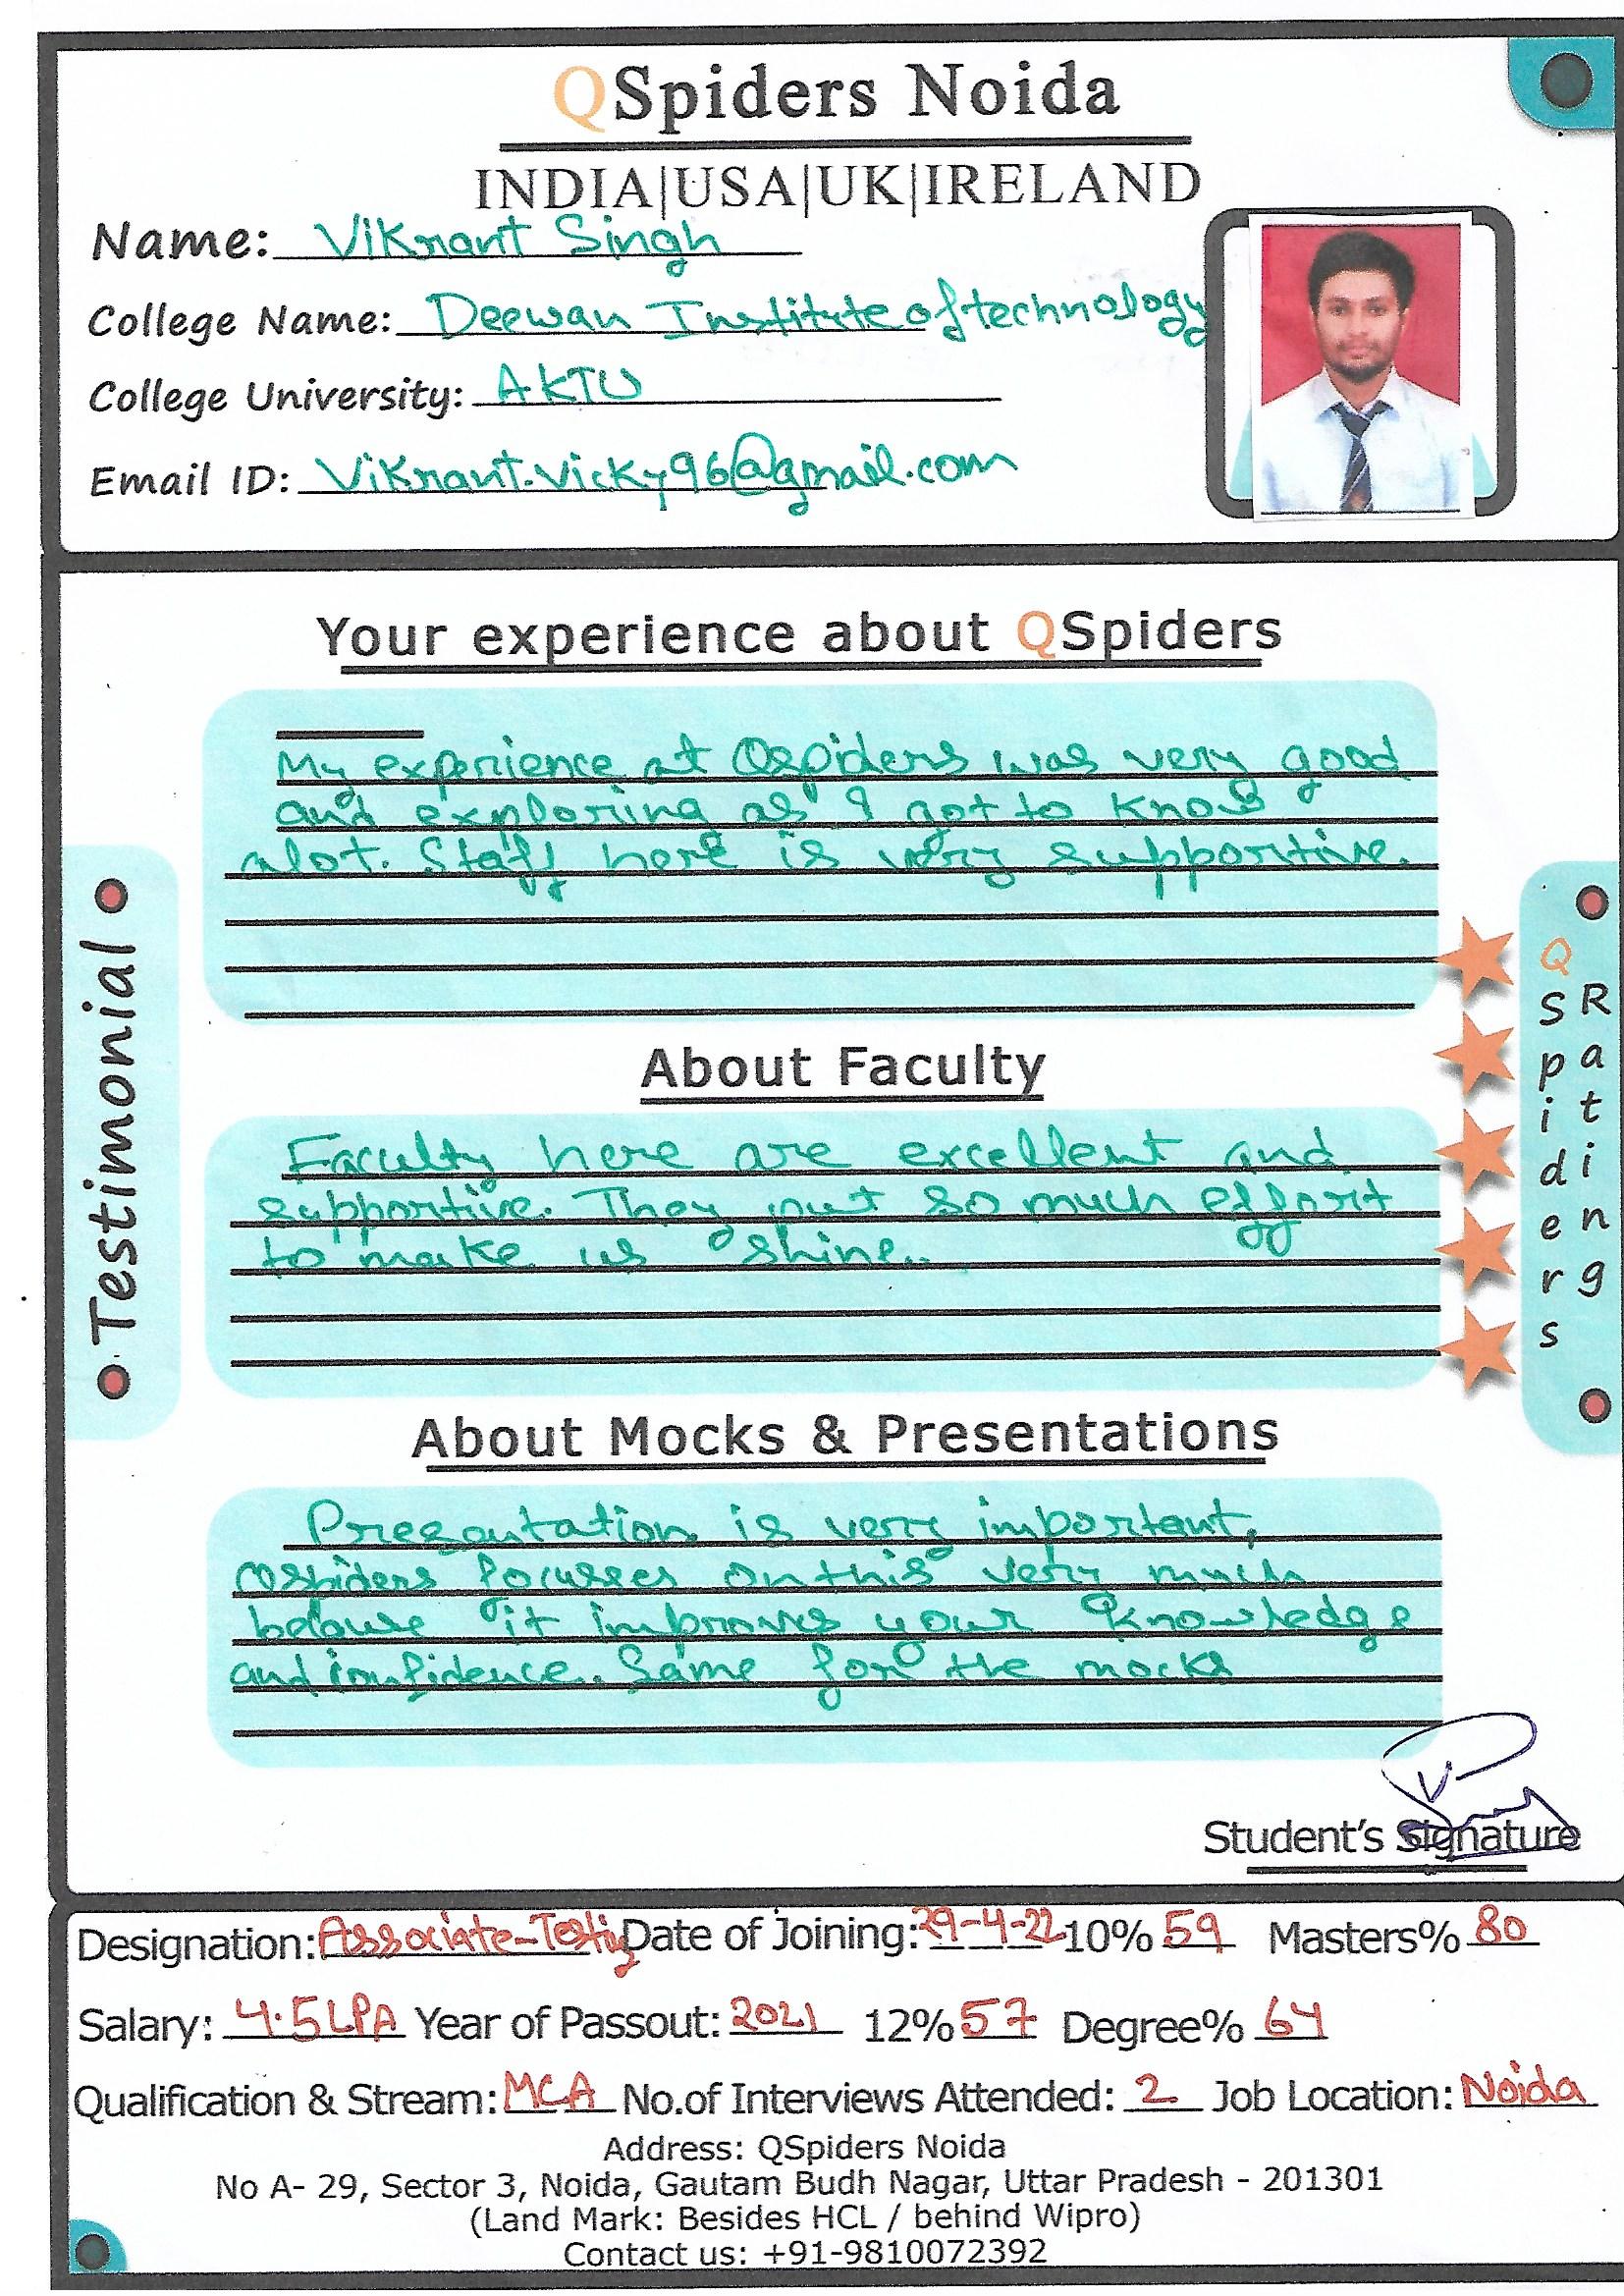 QSpiders Noida
INDIA|USA|UK|IRELAND
Name: Vikrant Singh
College Name: Deewan Institute of technology
College University: AKTU
Email ID: Vikrant.vicky96@gmail.com
Your experience about QSpiders
My experience at Qspiders was very good
and exploring as I got to know
alot. Staff here is very supportive.
About Faculty
Faculty here are excellent and
supportive. They put so much effort
to make us shine..
About Mocks & Presentations
Presentation is very important,
Qspiders focusses on this very much
because it improves your knowledge
and confidence. Same for the mocks
Testimonial
QSpiders
Ratings
Student's Signature
Designation: Associate-Testing Date of Joining: 29-4-22 10% 59 Masters% 80
Salary: 4.5 LPA Year of Passout: 2021 12% 57 Degree% 64
Qualification & Stream: MCA No.of Interviews Attended: 2 Job Location: Noida
Address: QSpiders Noida
No A- 29, Sector 3, Noida, Gautam Budh Nagar, Uttar Pradesh - 201301
(Land Mark: Besides HCL / behind Wipro)
Contact us: +91-9810072392